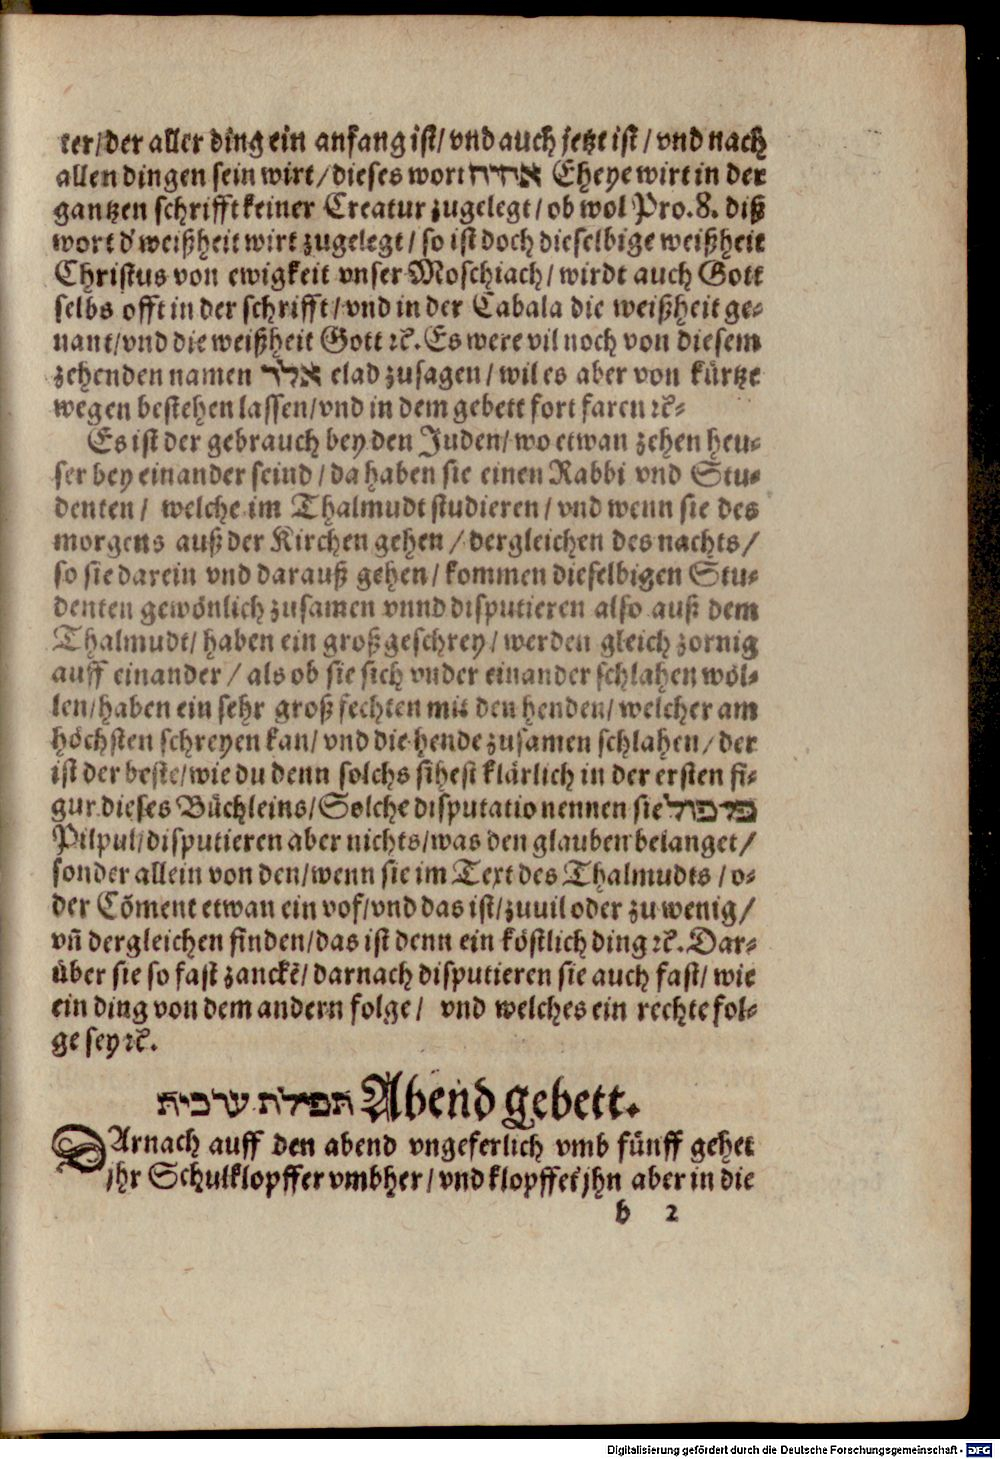 ter/der aller ding ein anfang ist/vnd auch jetzt ist/vnd nach
allen dingen sein wirt/dieses wort אהיה Eheye wirt in der
gantzen schrifft keiner Creatur zugelegt/ob wol Pro.8. diß
wort d' weißheit wirt zugelegt/so ist doch dieselbige weißheit
Christus von ewigkeit vnser Moschiach/wirdt auch Gott
selbs offt in der schrifft/vnd in der Cabala die weißheit ge-
nant/vnd die weißheit Gott ꝛc. Es were vil noch von diesem
zehenden namen אלד elad zusagen/wil es aber von kürtze
wegen bestehen lassen/vnd in dem gebett fort faren ꝛc-
Es ist der gebrauch bey den Juden/wo etwan zehen heu-
ser bey einander seind/da haben sie einen Rabbi vnd Stu-
denten/ welche im Thalmudt studieren/vnd wenn sie des
morgens auß der Kirchen gehen/dergleichen des nachts/
so sie darein vnd darauß gehen/kommen dieselbigen Stu-
denten gewönlich zusamen vnnd disputieren also auß dem
Thalmudt/haben ein groß geschrey/werden gleich zornig
auff einander/als ob sie sich vnder einander schlahen wöl-
len/haben ein sehr groß fechten mit den henden/welcher am
höchsten schreyen kan/vnd die hende zusamen schlahen/der
ist der beste/wie du denn solchs sihest klärlich in der ersten fi-
gur dieses Büchleins/Solche disputatio nennen sie פלפול
Pilpul/disputieren aber nichts/was den glauben belanget/
sonder allein von den/wenn sie im Text des Thalmudts/o-
der Cōment etwan ein vof/vnd das ist/zuuil oder zu wenig/
vñ dergleichen finden/das ist denn ein köstlich ding ꝛc. Dar-
über sie so fast zanckē/darnach disputieren sie auch fast/wie
ein ding von dem andern folge/ vnd welches ein rechte fol-
ge sey ꝛc.
תפילת ערבית Abend gebett.
DArnach auff den abend vngeferlich vmb fünff gehet
jhr Schulklopffer vmbher/vnd klopffet jhn aber in die
b 2
Digitalisierung gefördert durch die Deutsche Forschungsgemeinschaft - DFG